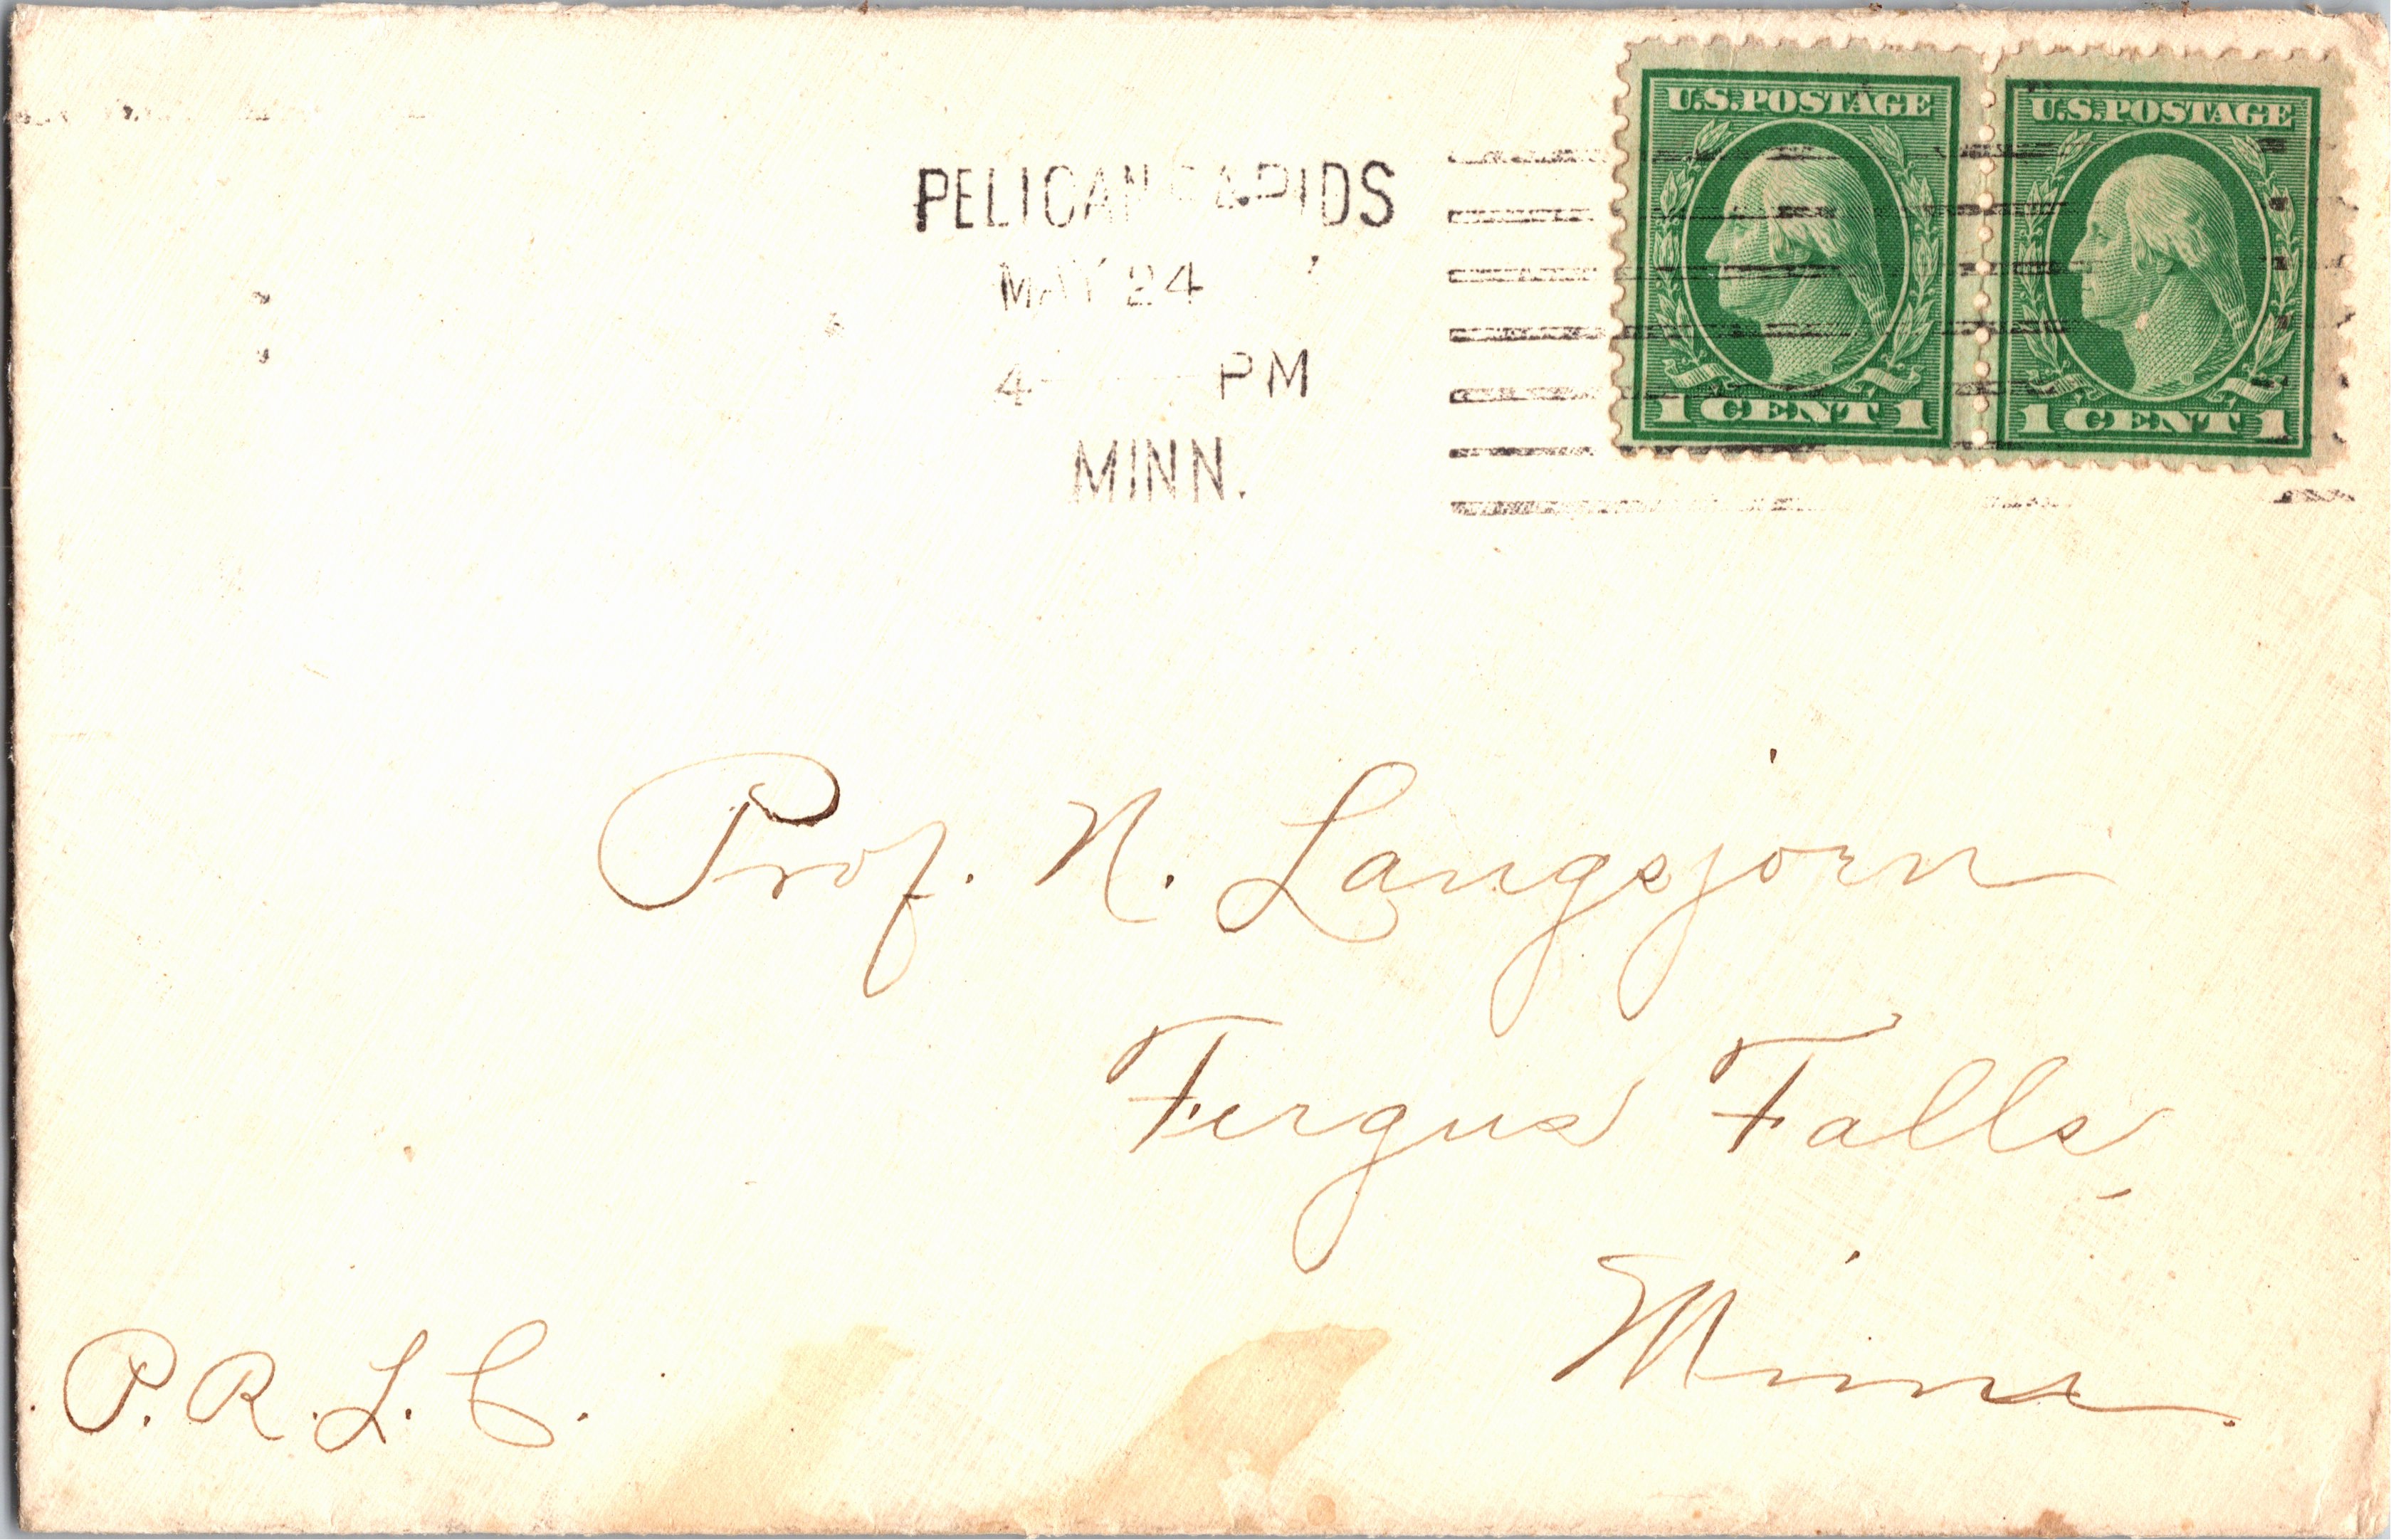 U.S. POSTAGE
1 CENT 1
U.S. POSTAGE
1 CENT 1
PELICAN RAPIDS
MAY 24
4 PM
MINN.
Prof. N. Langsjoen
Fergus Falls,
Minn.
P. R. L. C.